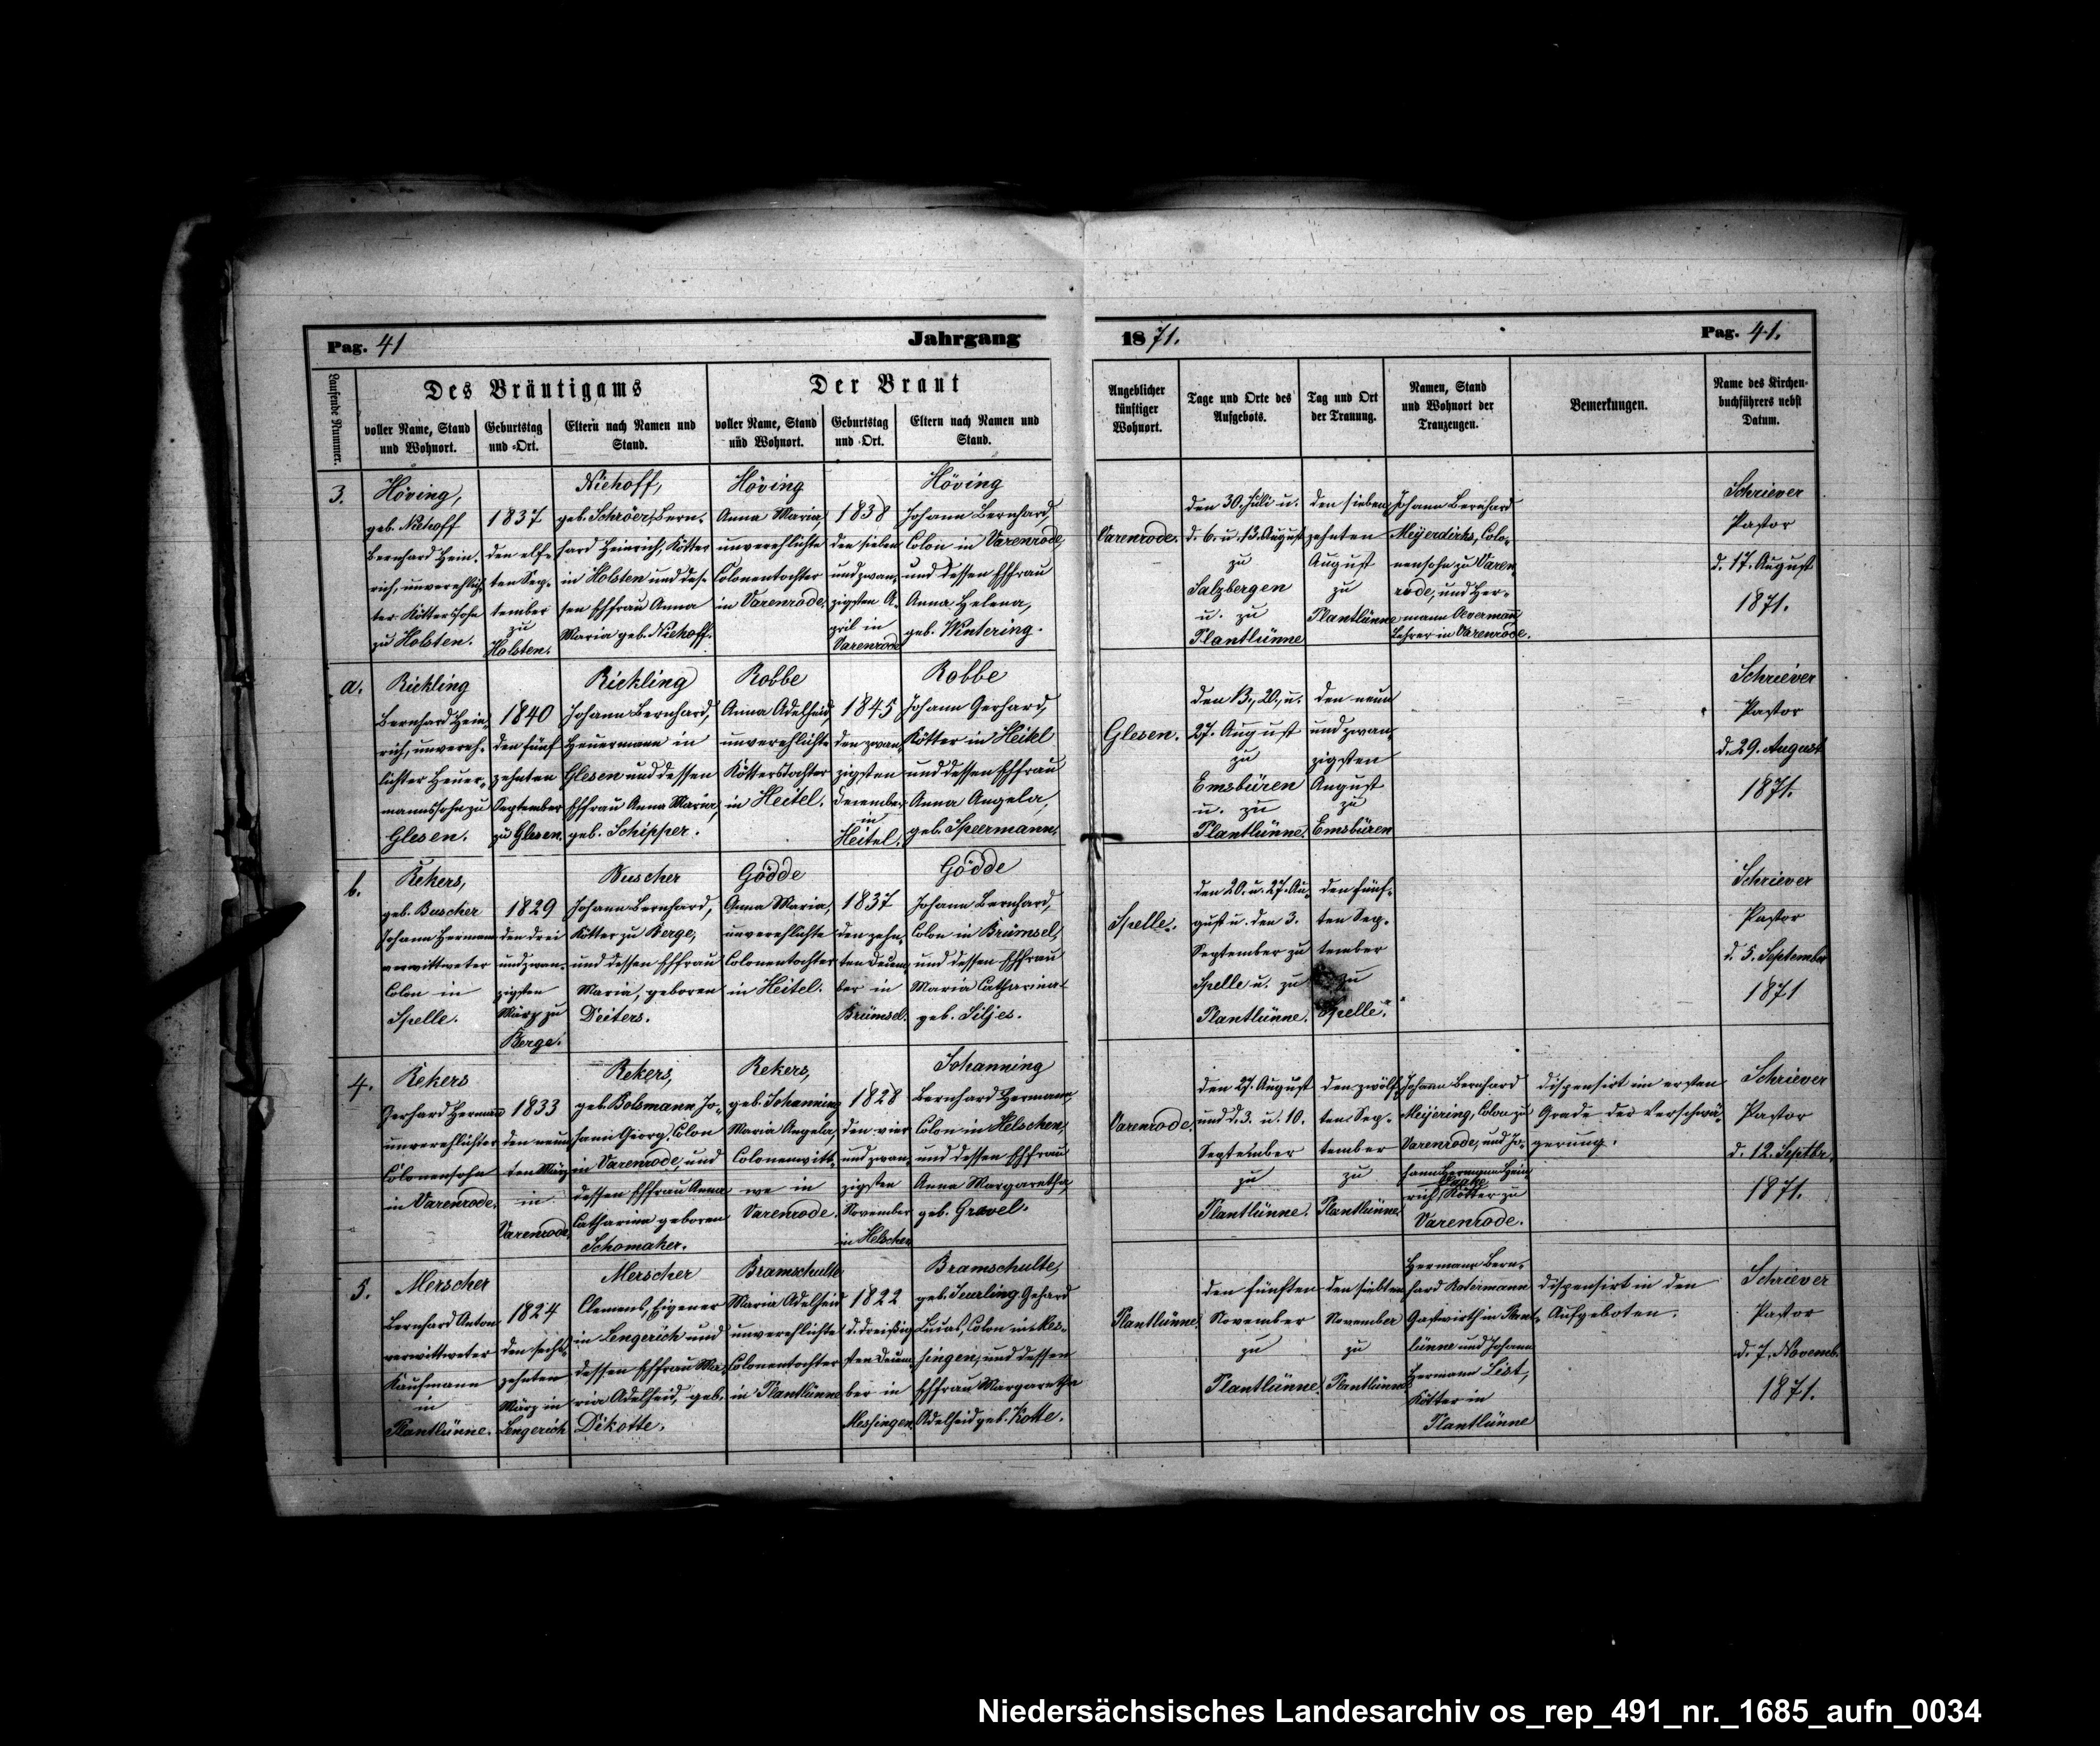 Pag. 41
Jahrgang
1871.
Pag. 41.
Laufende Nummer.
Des Bräutigams
Der Braut
voller Name, Stand
und Wohnort.
Geburtstag
und =Ort.
Eltern nach Namen und
Stand.
voller Name, Stand
und Wohnort.
Geburtstag
und =Ort.
Eltern nach Namen und
Stand.
Angeblicher
künftiger
Wohnort.
Tage und Orte des
Aufgebots.
Tag und Ort
der Trauung.
Namen, Stand
und Wohnort der
Trauzeugen.
Bemerkungen.
Name des Kirchen-
buchführers nebst
Datum.
3.
Höving,
geb. Niehoff
Bernhard Hein-
rich, unverehlich-
ter Kötterssohn
zu Holsten.
1837
den elf-
ten Sep-
tember
zu
Holsten.
Niehoff,
geb. Schröer, Bern-
hard Heinrich, Kötter
in Holsten und des-
sen Ehefrau Anna
Maria geb. Niehoff.
Höving
Anna Maria,
unverehlichte
Colonentochter
in Varenrode.
1838
den sieben
und zwan-
zigsten A-
pril in
Varenrode
Höving
Johann Bernhard,
Colon in Varenrode,
und dessen Ehefrau
Anna Helena,
geb. Wintering.
Varenrode.
den 30. Juli u.
d. 6. u. 13. August
zu
Salzbergen
u. zu
Plantlünne
den sieben
zehnten
August
zu
Plantlünne
Johann Bernhard
Meyerdirks, Colo-
nensohn zu Varen-
rode, und Her-
mann Overmann
Lehrer in Varenrode.
Schriever
Pastor
d. 17. August
1871.
a.
Rickling
Bernhard Hein-
rich, unvereh-
lichter Heuer-
mannssohn zu
Glesen.
1840
den fünf
zehnten
September
zu Glesen.
Rickling
Johann Bernhard,
Heuermann in
Glesen und dessen
Ehefrau Anna Maria,
geb. Schipper.
Robbe
Anna Adelheid,
unverehlichte
Kötterstochter
in Heitel.
1845
den zwan-
zigsten
Dezember
in
Heitel.
Robbe
Johann Gerhard,
Kötter in Heitel
und dessen Ehefrau
Anna Angela,
geb. Speermann.
Glesen.
den 13., 20. u.
27. August
zu
Emsbüren
u. zu
Plantlünne.
den neun
und zwan-
zigsten
August
zu
Emsbüren
Schriever
Pastor
d. 29. August
1871.
b.
Rekers,
geb. Buscher
Johann Hermann
verwittweter
Colon in
Spelle.
1829
den drei
und zwan-
zigsten
März zu
Berge.
Buscher
Johann Bernhard,
Kötter zu Berge,
und dessen Ehefrau
Maria, geboren
Deiters.
Gödde
Anna Maria,
unverehlichte
Colonentochter
in Heitel.
1837
den zehn-
ten Dezem-
ber in
Brümsel.
Gödde
Johann Bernhard,
Colon in Brümsel,
und dessen Ehefrau
Maria Catharina
geb. Siljes.
Spelle.
den 20. u. 27. Au-
gust u. den 3.
September zu
Spelle u. zu
Plantlünne.
den fünf-
ten Sep-
tember
zu
Spelle.
Schriever
Pastor
d. 5. September
1871
4.
Rekers
Gerhard Hermann
unverehlichter
Colonensohn
in Varenrode.
1833
den neun
ten März
in
Varenrode.
Rekers,
geb. Bolsmann Jo-
hann Georg, Colon
in Varenrode, und
dessen Ehefrau Anna
Catharina geboren
Schomaker.
Rekers,
geb. Johanning
Maria Angela,
Colonenwitt-
we in
Varenrode.
1828
den vier
und zwan-
zigsten
November
in Helschen
Johanning
Bernhard Hermann,
Colon in Helschen,
und dessen Ehefrau
Anna Margaretha,
geb. Gravel.
Varenrode.
den 27. August
und d. 3. u. 10.
September
zu
Plantlünne.
den zwölf
ten Sep-
tember
zu
Plantlünne.
Johann Bernhard
Meijering, Colon zu
Varenrode, und Jo-
hann Hermann Hein-
rich Kötter zu
Varenrode.
dispensirt im ersten
Grade der Verschwä-
gerung.
Schriever
Pastor
d. 12. Septbr.
1871.
5.
Merscher
Bernhard Anton
verwittweter
Kaufmann
in
Plantlünne.
1824
den sechs-
zehnten
März in
Lengerich
Merscher
Clemens, Eigener
in Lengerich und
dessen Ehefrau Ma-
ria Adelheid, geb.
Dikotte.
Bramschulte
Maria Adelheid
unverehlichte
Colonentochter
in Plantlünne
1822
d. dreißig
sten Dezem-
ber in
Messingen.
Bramschulte,
geb. Teurling, Gehard
Lucas, Colon in Mes-
singen, und dessen
Ehefrau Margaretha
Adelheid geb. Kotte.
Plantlünne.
den fünften
November
zu
Plantlünne.
den siebten
November
zu
Plantlünne
Hermann Bern-
hard Rotermann
Gastwirth in Plant-
lünne und Johann
Hermann List,
Kötter in
Plantlünne
dispensirt in den
Aufgeboten.
Schriever
Pastor
d. 7. Novemb.
1871.
Niedersächsisches Landesarchiv os_rep_491_nr._1685_aufn_0034